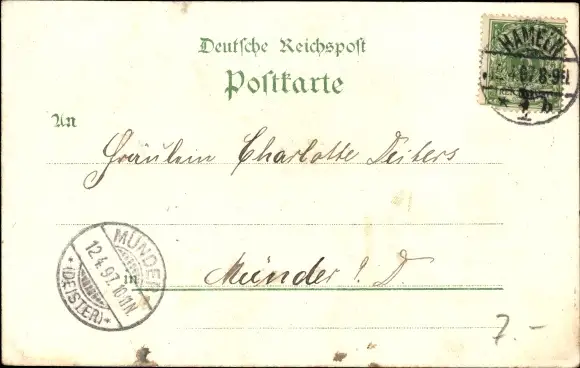 Deutsche Reichspost
Postkarte
HAMELN
12.4.97.8-9N.
An
Fräulein Charlotte Deiters
MÜNDER
12.4.97.10-11N.
*(DEISTER)*
in
Münder a. D.
7.-